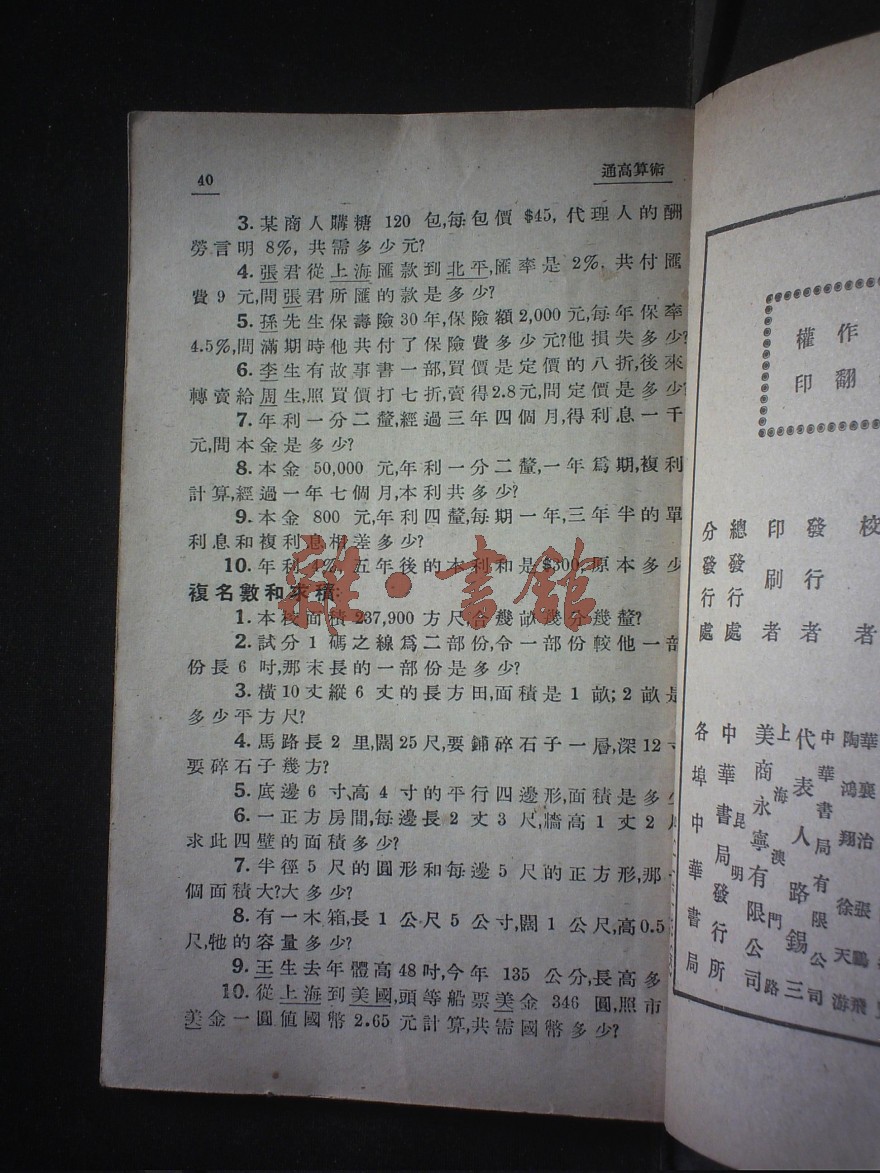 40
通高算術
3. 某商人購糖 120 包,每包價 $45, 代理人的酬
勞言明 8%, 共需多少元?
4. 張君從上海匯款到北平,匯率是 2%, 共付匯
費 9 元,問張君所匯的款是多少?
5. 孫先生保壽險30年,保險額2,000元,每年保率
4.5%,問滿期時他共付了保險費多少元?他損失多少?
6. 李生有故事書一部,買價是定價的八折,後來
轉賣給周生,照買價打七折,賣得2.8元,問定價是多少?
7. 年利一分二釐,經過三年四個月,得利息一千
元,問本金是多少?
8. 本金 50,000 元,年利一分二釐,一年爲期,複利
計算,經過一年七個月,本利共多少?
9. 本金 800 元,年利四釐,每期一年,三年半的單
利息和複利息相差多少?
10. 年利4%,五年後的本利和是$300,原本多少
複名數和求積:
1. 本校面積237,900方尺,合幾畝幾分幾釐?
2. 試分 1 碼之線爲二部份,令一部份較他一部
份長 6 吋,那末長的一部份是多少?
3. 橫10丈縱 6 丈的長方田,面積是 1 畝; 2 畝是
多少平方尺?
4. 馬路長 2 里,闊25尺,要鋪碎石子一層,深12寸
要碎石子幾方?
5. 底邊 6 寸,高 4 寸的平行四邊形,面積是多少
6. 一正方房間,每邊長 2 丈 3 尺,牆高 1 丈 2
求此四壁的面積多少?
7. 半徑 5 尺的圓形和每邊 5 尺的正方形,那一
個面積大?大多少?
8. 有一木箱,長 1 公尺 5 公寸,闊 1 公尺,高0.5
尺,牠的容量多少?
9. 王生去年體高48吋,今年 135 公分,長高多
10. 從上海到美國,頭等船票美金 346 圓,照市
美金一圓値國幣2.65元計算,共需國幣多少?
雜·書館
作
權
翻
印
校者
發行者
印刷者
總發行處
分發行處
華襄治 張鵬飛
陶鴻翔 徐天游
中華書局有限公司
代表人 路錫三
上海澳門路
美商永寧有限公司
昆明
中華書局發行所
各埠中華書局